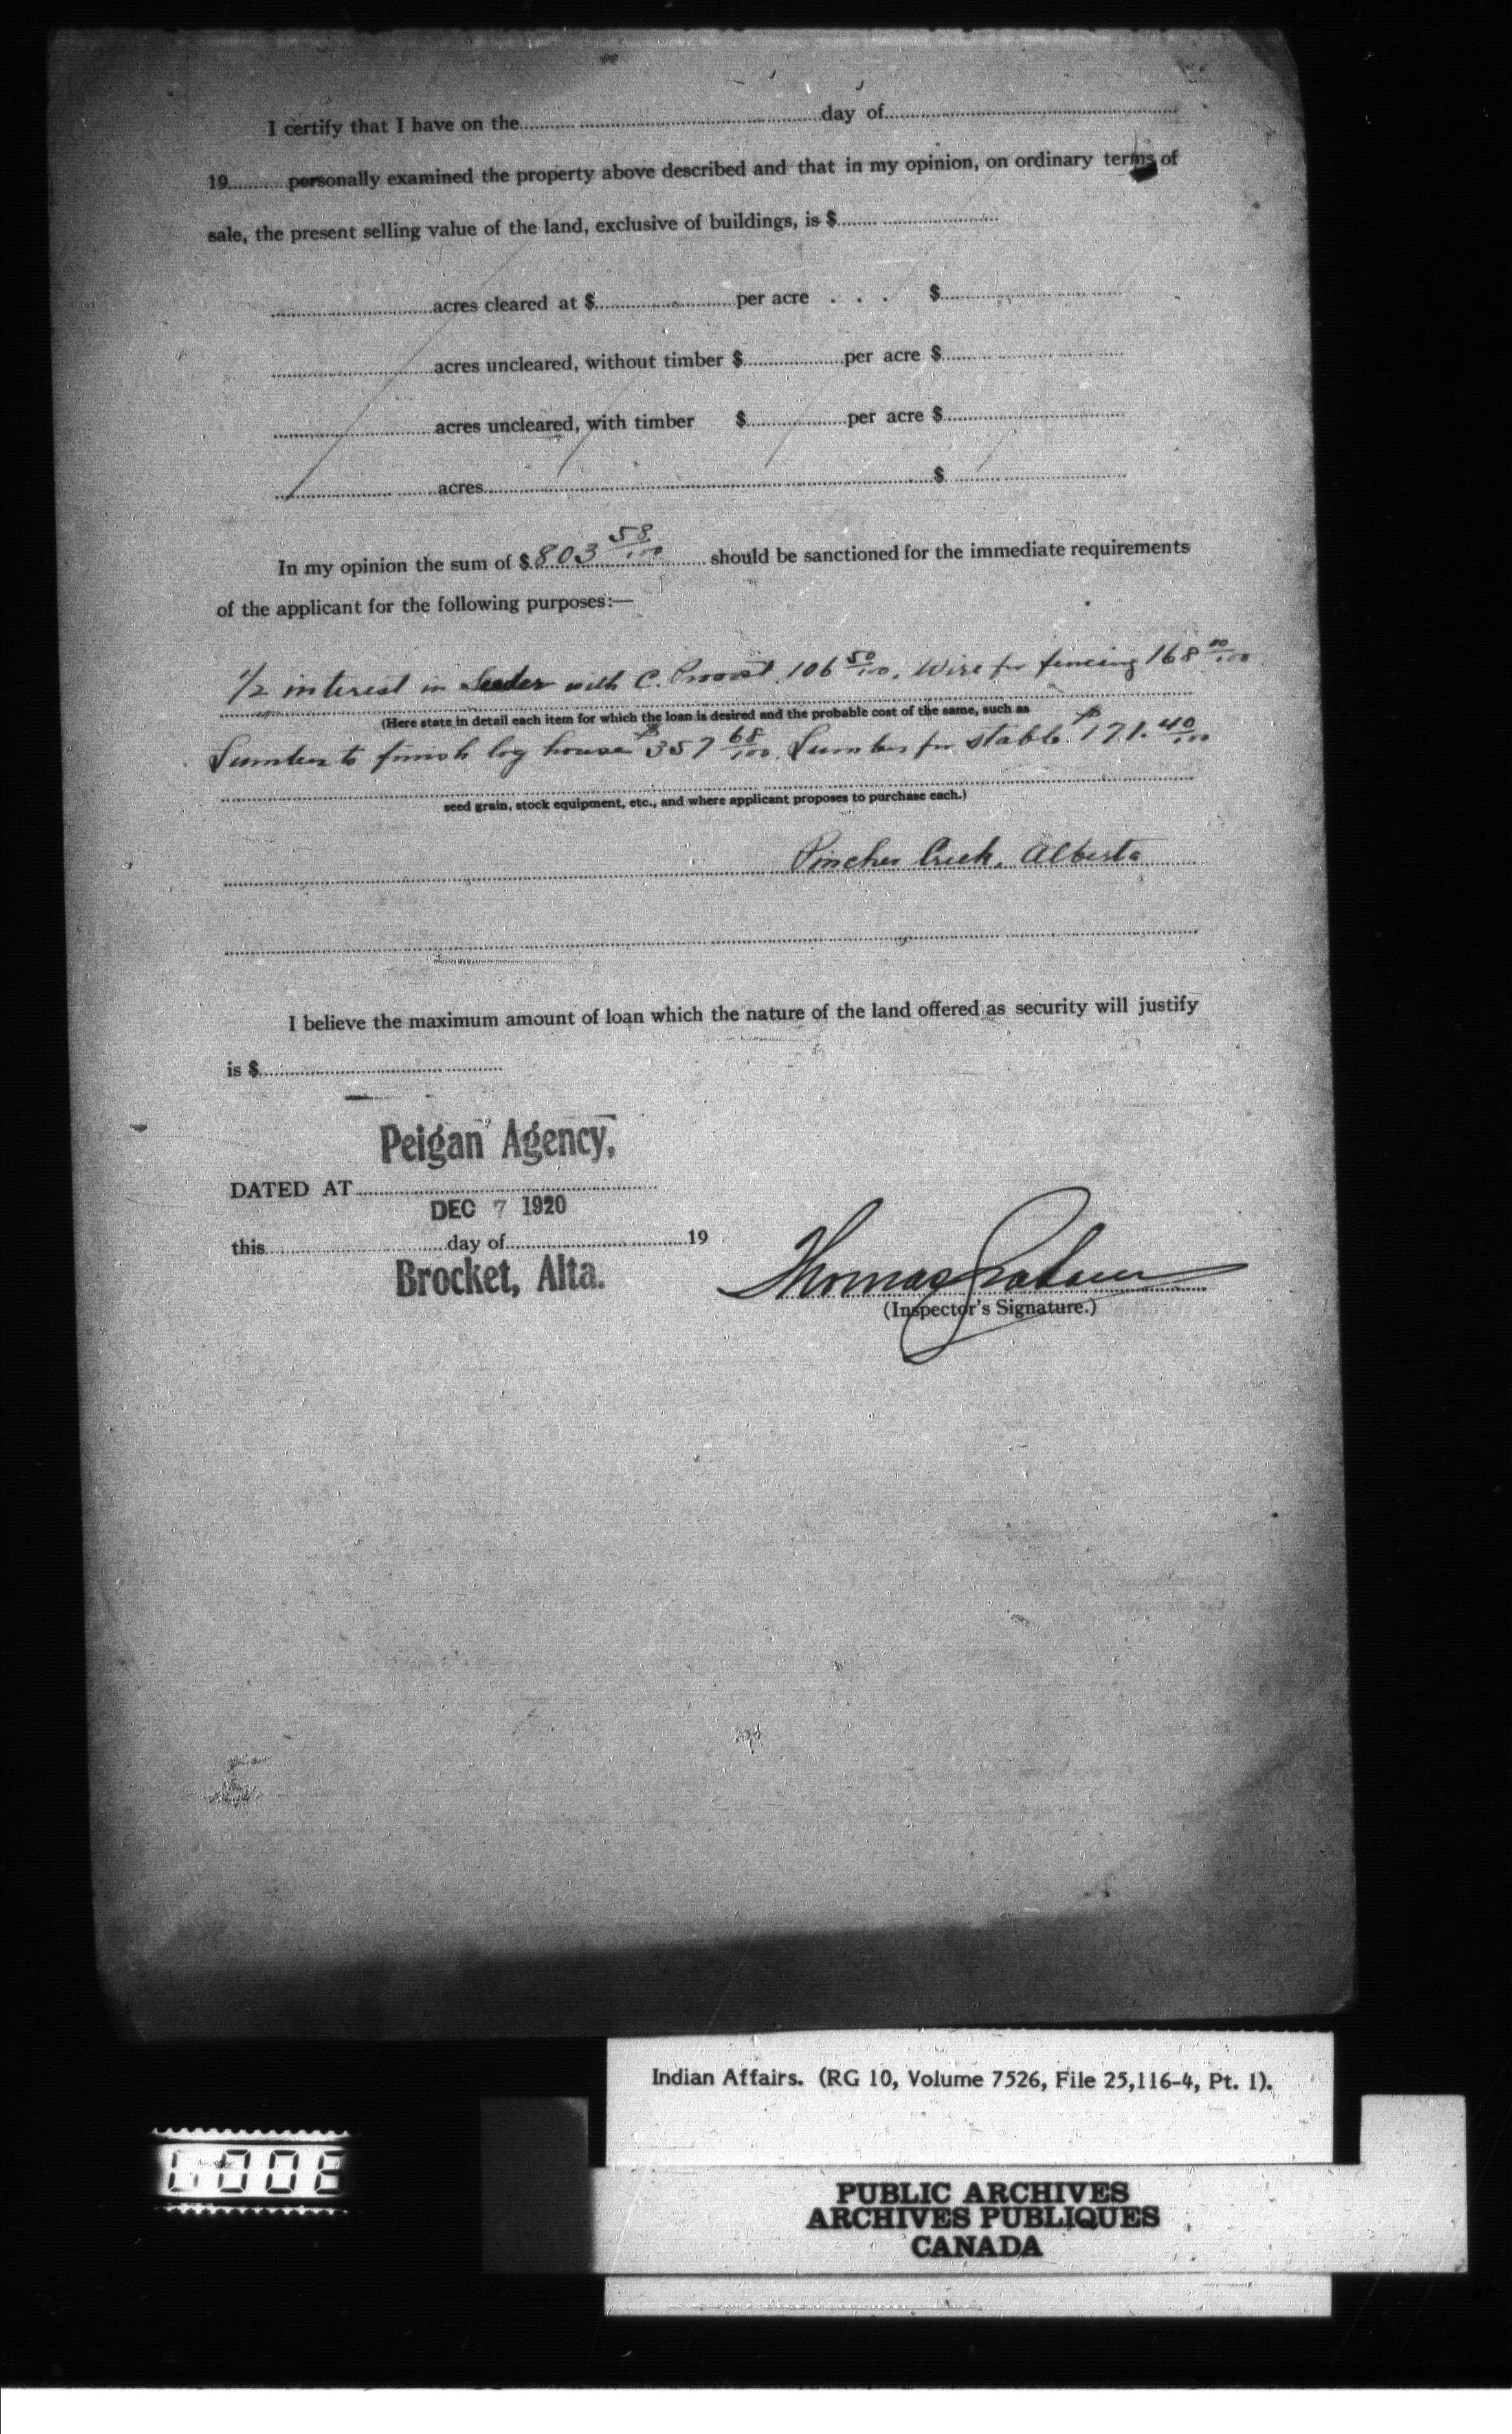 I certify that I have on the..............................day of..............................
19............personally examined the property above described and that in my opinion, on ordinary terms of
sale, the present selling value of the land, exclusive of buildings, is $..............................
..............................acres cleared at $..............................per acre . . . $..............................
..............................acres uncleared, without timber $....................per acre $..............................
..............................acres uncleared, with timber $....................per acre $..............................
..............................acres..............................$..............................
In my opinion the sum of $ 803 58/100 should be sanctioned for the immediate requirements
of the applicant for the following purposes:—
1/2 interest in Seeder with C. Provost. 106 50/100. Wire for fencing 168 00/100
(Here state in detail each item for which the loan is desired and the probable cost of the same, such as
Lumber to finish log house $357 68/100. Lumber for stable. $171.40/100
seed grain, stock equipment, etc., and where applicant proposes to purchase each.)
Pincher Creek, Alberta
I believe the maximum amount of loan which the nature of the land offered as security will justify
is $..............................
Peigan Agency,
DATED AT..............................
DEC 7 1920
this..............................day of..............................19
Brocket, Alta.
Thomas Graham
(Inspector's Signature.)
Indian Affairs. (RG 10, Volume 7526, File 25,116-4, Pt. 1).
PUBLIC ARCHIVES
ARCHIVES PUBLIQUES
CANADA